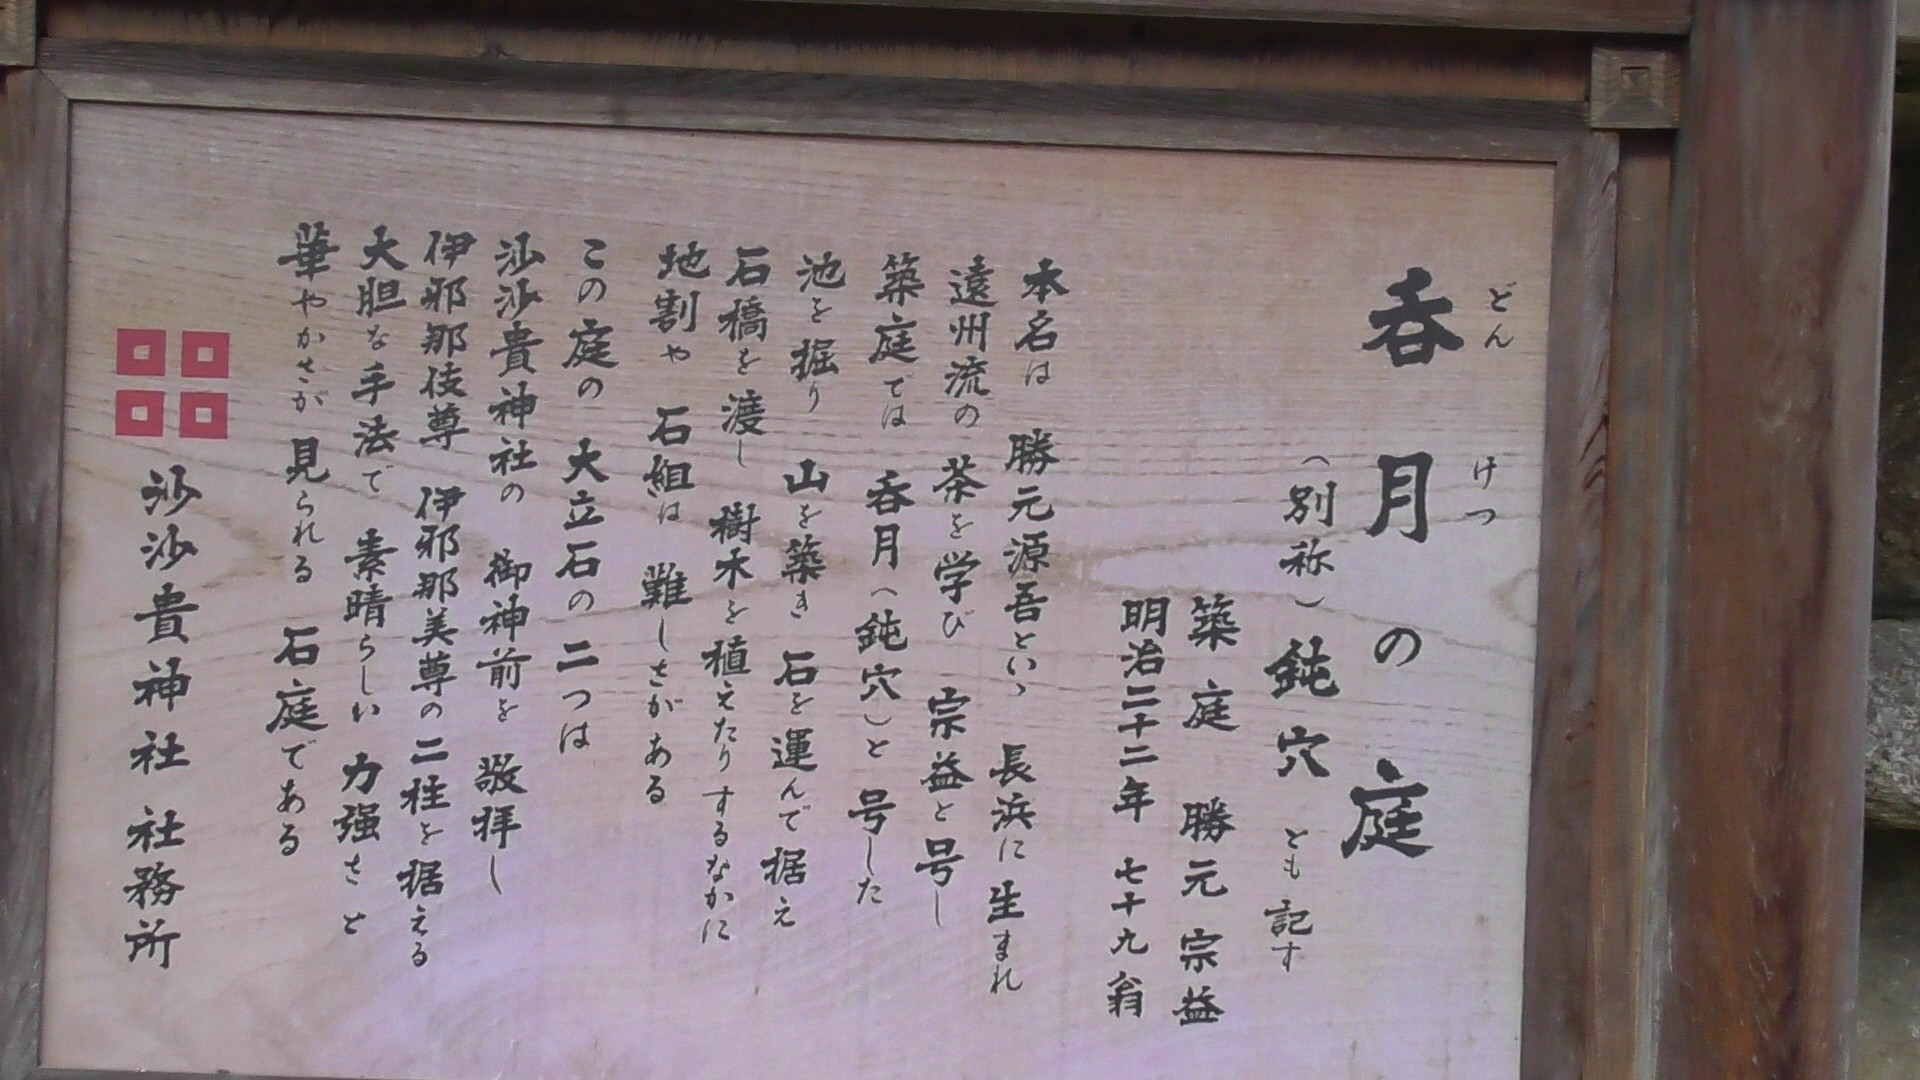 呑月の庭
どんけつ
（別称）鈍穴とも記す
築庭 勝元宗益
明治二十二年 七十九翁
本名は 勝元源吾といゝ 長浜に生まれ
遠州流の 茶を学び 宗益と号し
築庭では 呑月（鈍穴）と号した
池を掘り 山を築き 石を運んで据え
石橋を渡し 樹木を植えたりするなかに
地割や 石組は 難しさがある
この庭の 大立石の 二つは
沙沙貴神社の 御神前を 敬拝し
伊邪那伎尊 伊邪那美尊の二柱を据える
大胆な手法で 素晴らしい 力強さと
華やかさが 見られる 石庭である
沙沙貴神社 社務所